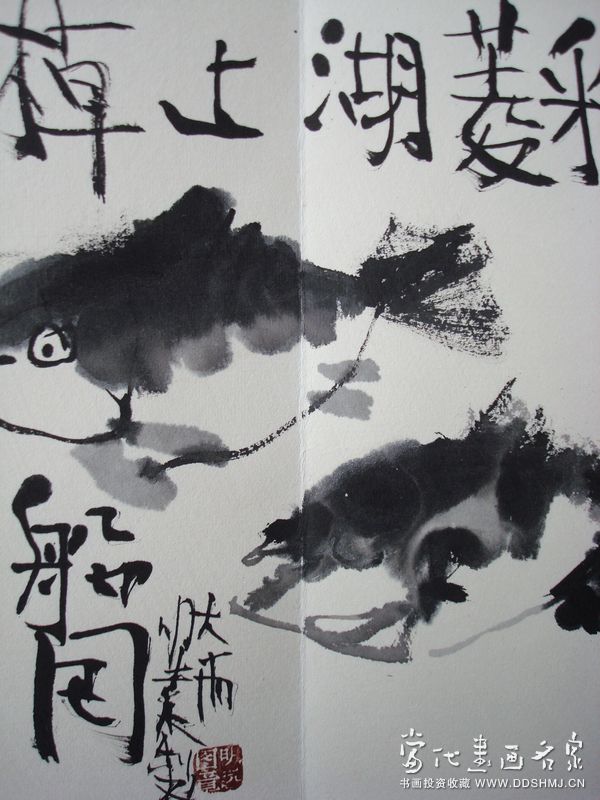 采菱湖上棹
船回
當代書画名家
书画投资收藏 WWW.DDSHMJ.CN